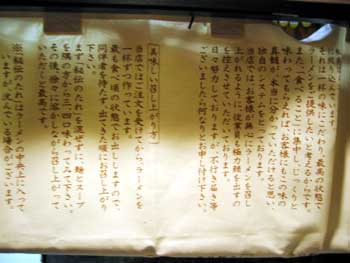 それは「味」にこだわり、最高の状態で
ラーメンをご提供したいと考えるからです。
また、「食べる」ことに集中し、じっくりと
味わってもらえれば、お客様にもこの味の
真髄が本当に分かっていただけると思い
独自のシステムをとっております。
当店では、お客様が無心にラーメンを召し
上がれる様に、従業員も極力雑音を出すの
を控えさせていただいております。
日々努力しておりますが、不行き届き等
ございましたら何なりとお申し付け下さい。
【美味しい召し上がり方】
当店ではご注文を受けてから、ラーメンを
一杯ずつ作っております。
最も食べ頃の状態でお出ししますので、
同伴者を待たず、出てきた順にお召し上がり
下さい。
まず「秘伝のたれ」を混ぜずに、麺とスープ
を隅の方から三、四口味わってみて下さい。
その後、徐々に溶かしながら召し上がって
いただくと最高です。
※「秘伝のたれ」はラーメンの中央上に入って
いますが、沈んでいる場合がございます。